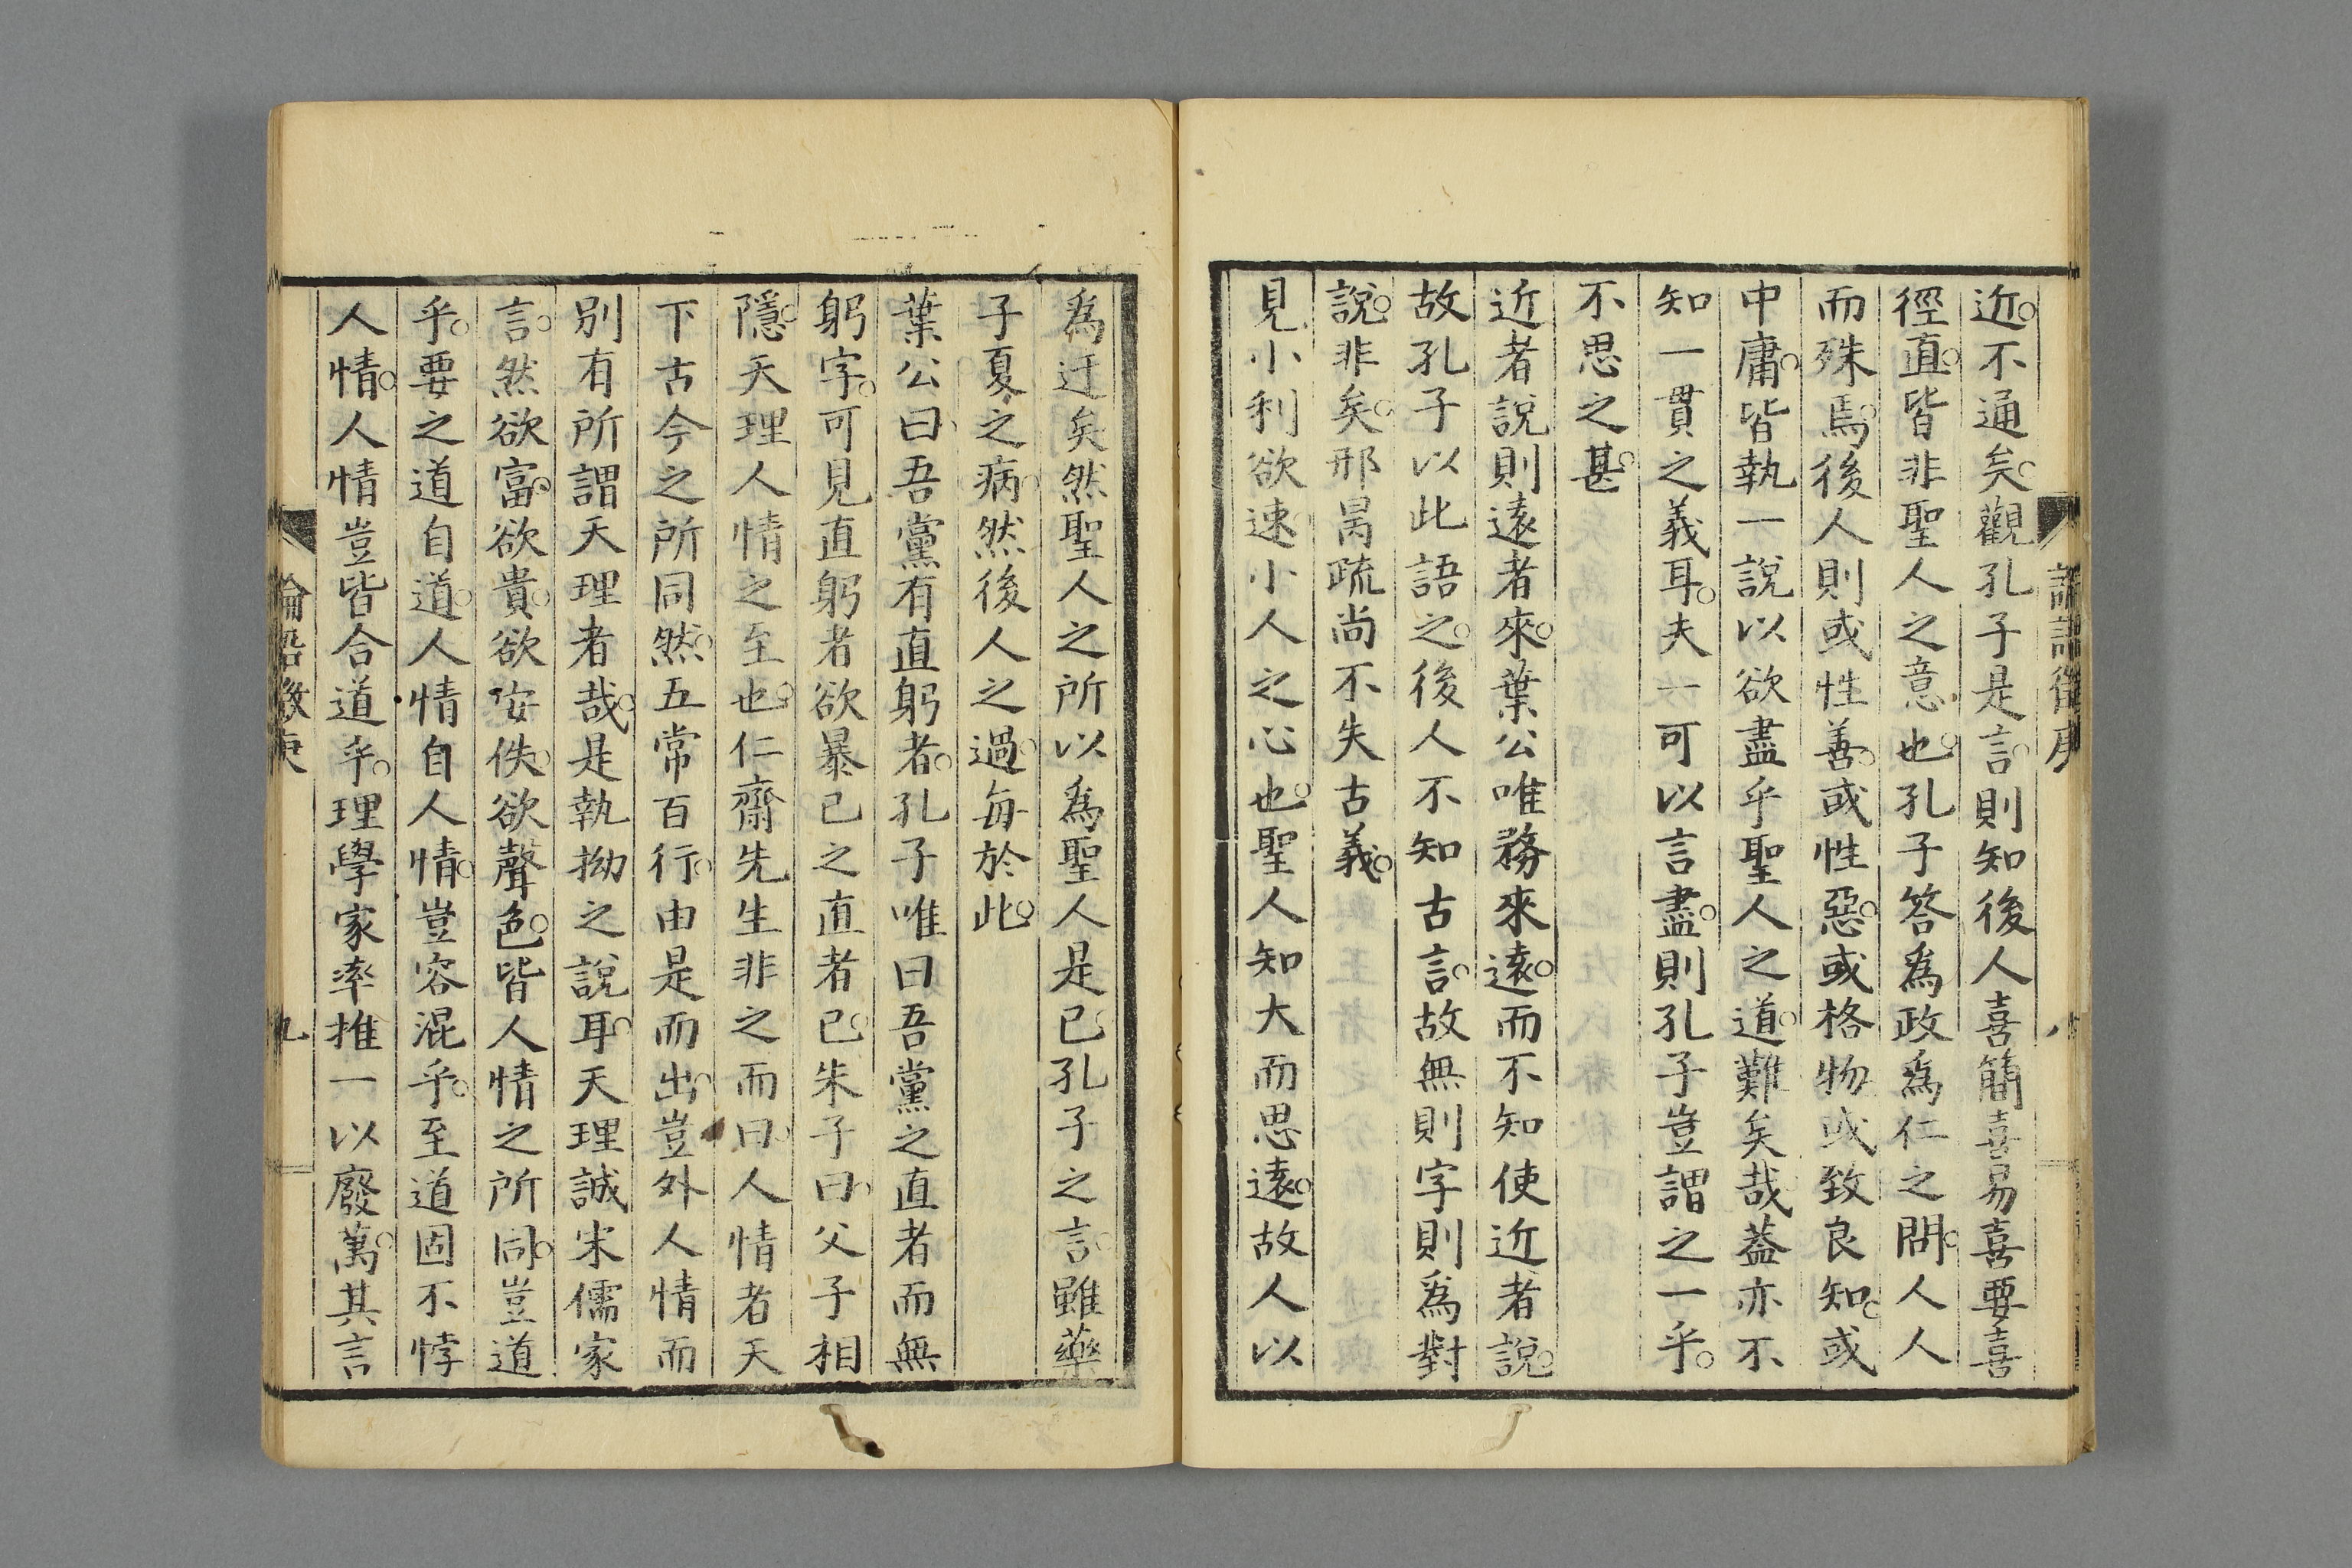 近不通矣觀孔子是言則知後人喜簡喜易喜要喜
徑直皆非聖人之意也孔子答爲政爲仁之問人人
而殊焉後人則或性善或性惡或格物或致良知或
中庸皆執一說以欲盡乎聖人之道難矣哉蓋亦不
知一貫之義耳夫一可以言盡則孔子豈謂之一乎
不思之甚
近者說則遠者來葉公唯務來遠而不知使近者說
故孔子以此語之後人不知古言故無則字則爲對
說非矣邢昺疏尚不失古義
見小利欲速小人之心也聖人知大而思遠故人以
爲迂矣然聖人之所以爲聖人是已孔子之言雖藥
子夏之病然後人之過每於此
葉公曰吾黨有直躬者孔子唯曰吾黨之直者而無
躬字可見直躬者欲暴己之直者已朱子曰父子相
隱天理人情之至也仁齋先生非之而曰人情者天
下古今之所同然五常百行由是而出豈外人情而
別有所謂天理者哉是執拗之說耳天理誠宋儒家
言然欲富欲貴欲安佚欲聲色皆人情之所同豈道
乎要之道自道人情自人情豈容混乎至道固不悖
人情人情豈皆合道乎理學家率推一以廢萬其言
論語徵庚
九